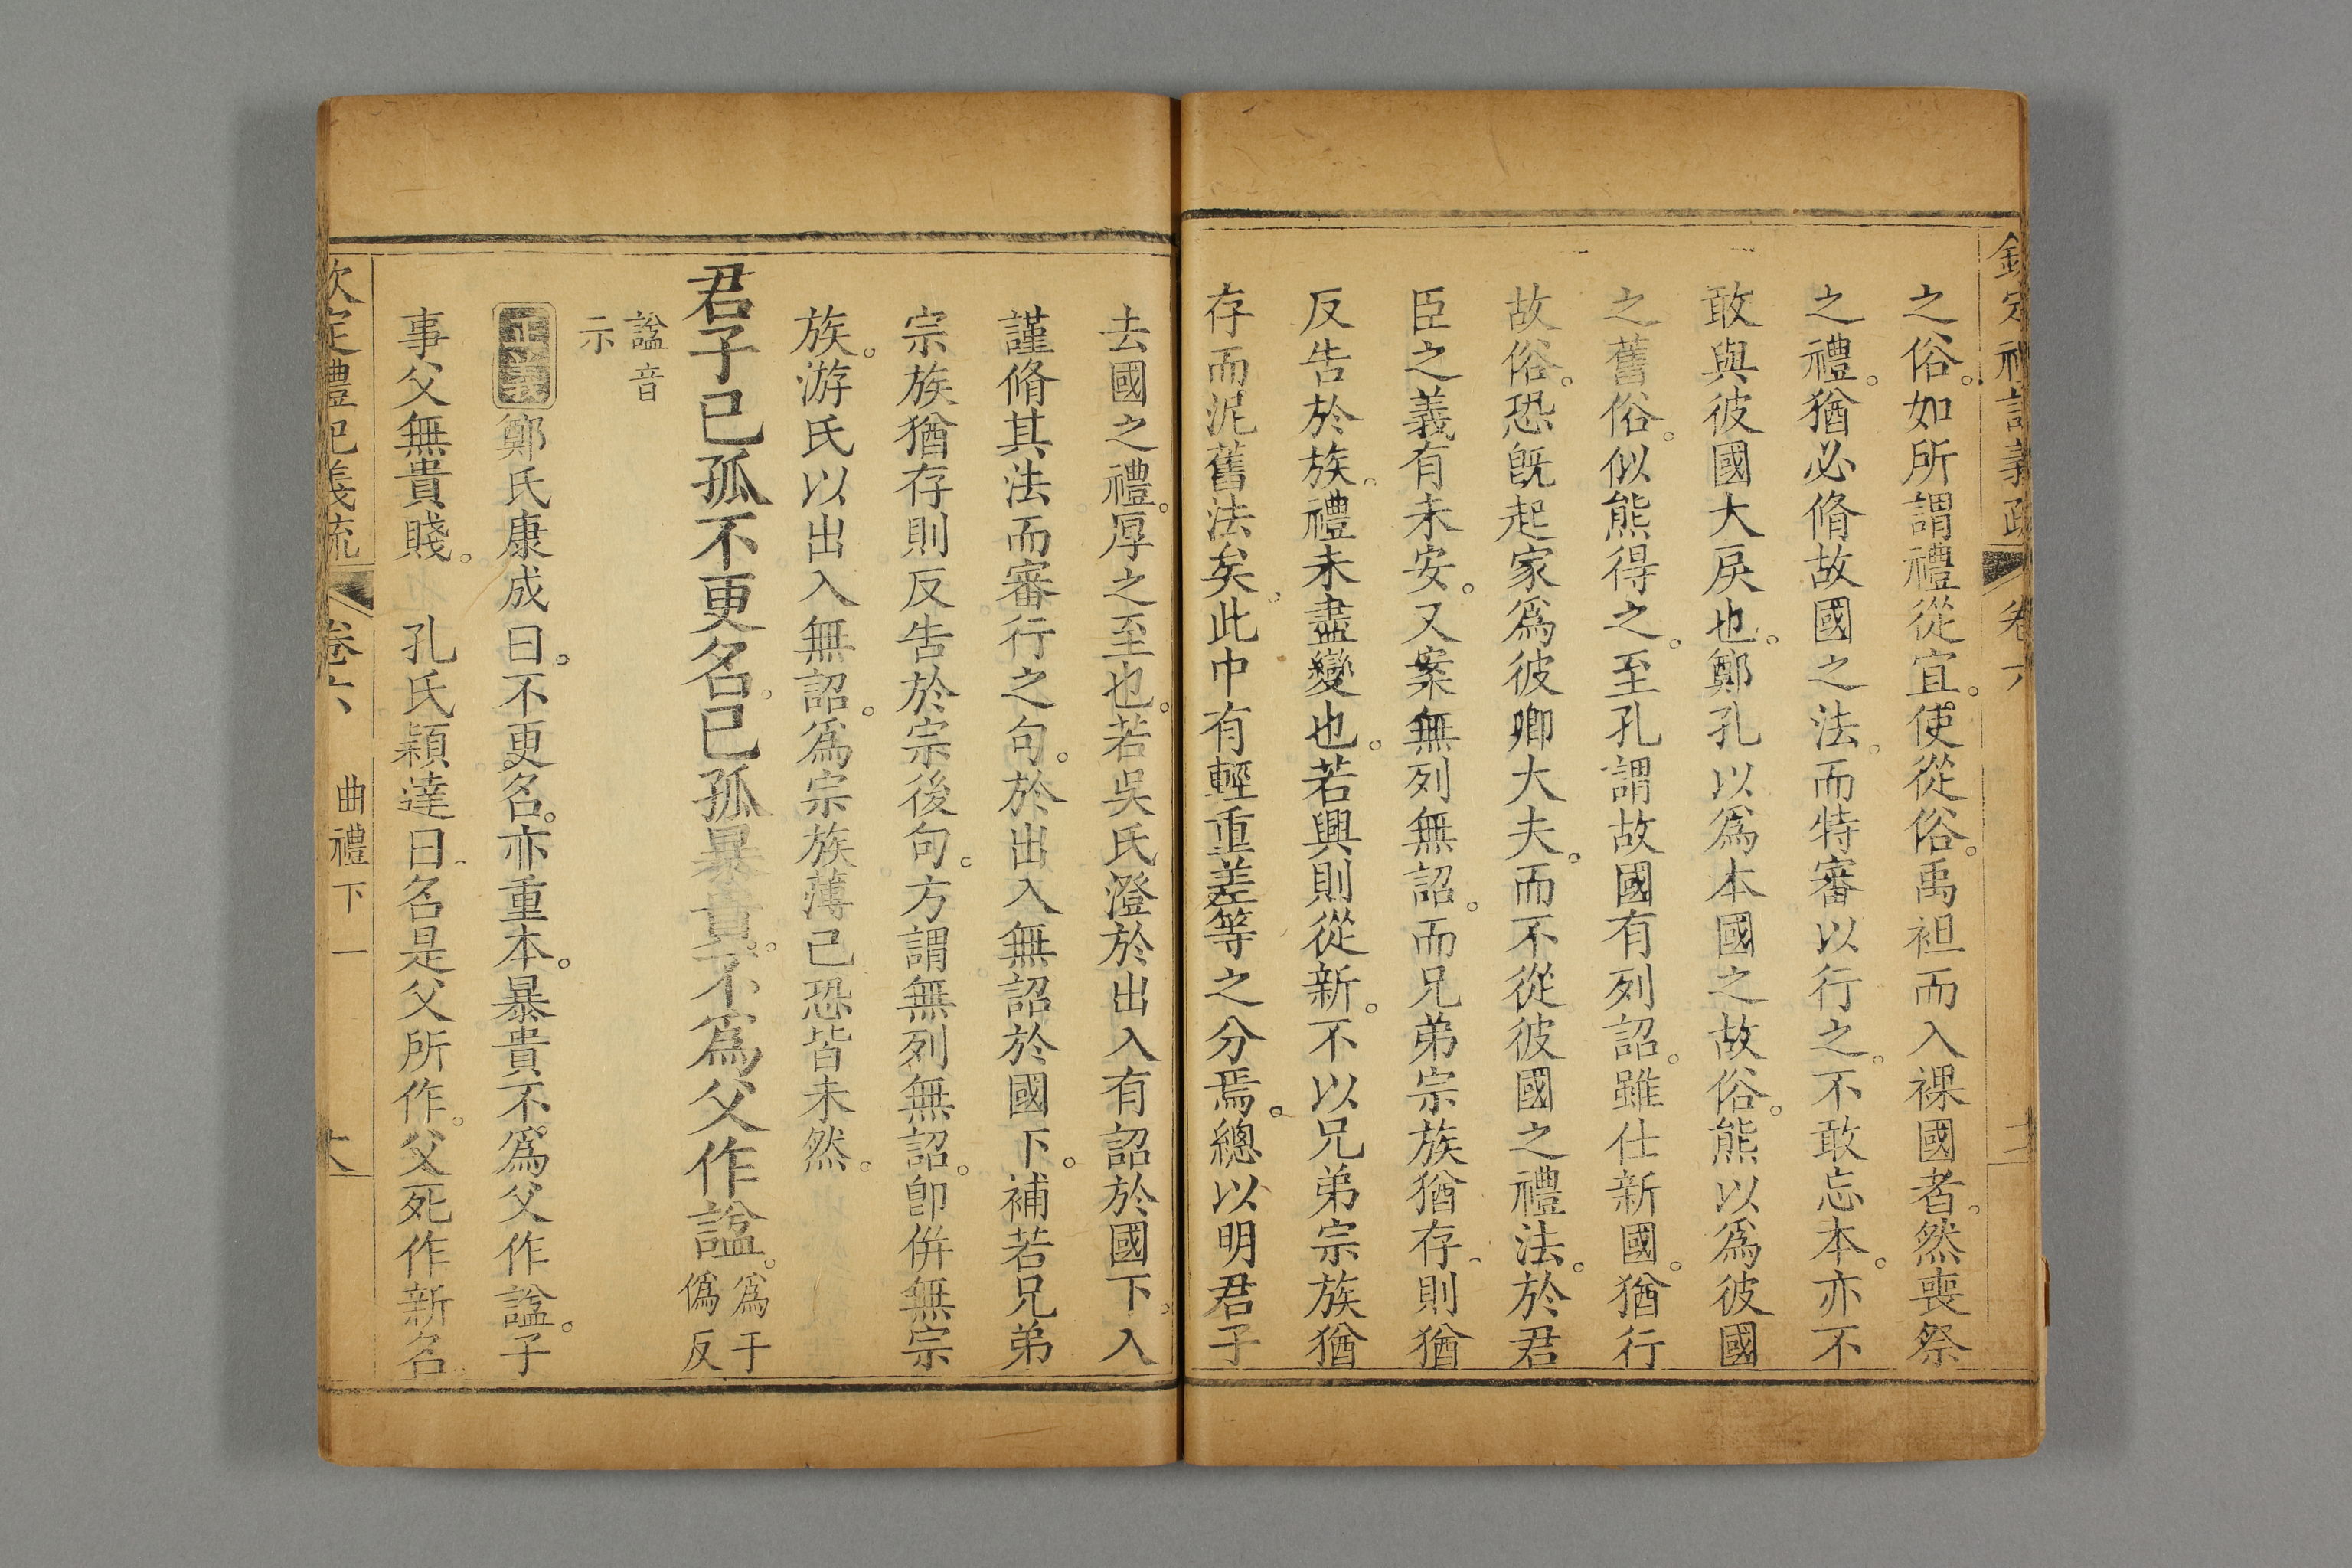 之俗。如所謂禮從宜。使從俗。禹袒而入裸國者。然喪祭
之禮。猶必脩故國之法。而特審以行之。不敢忘本。亦不
敢與彼國大戾也。鄭孔以爲本國之故俗。熊以爲彼國
之舊俗。似熊得之。至孔謂故國有列詔。雖仕新國。猶行
故俗。恐旣起家爲彼卿大夫。而不從彼國之禮法。於君
臣之義有未安。又案無列無詔。而兄弟宗族猶存。則猶
反告於族。禮未盡變也。若興則從新。不以兄弟宗族猶
存而泥舊法矣。此中有輕重差等之分焉。總以明君子
去國之禮。厚之至也。若吳氏澄於出入有詔於國下。入
謹脩其法而審行之句。於出入無詔於國下。補若兄弟
宗族猶存則反告於宗後句。方謂無列無詔。卽併無宗
族。游氏以出入無詔。爲宗族薄己恐皆未然。
君子已孤不更名。已孤暴貴。不爲父作諡。爲于
僞反
諡音
示
正義鄭氏康成曰。不更名。亦重本。暴貴不爲父作諡。子
事父無貴賤。 孔氏穎達曰。名是父所作。父死作新名
欽定禮記義疏 卷六 曲禮下一